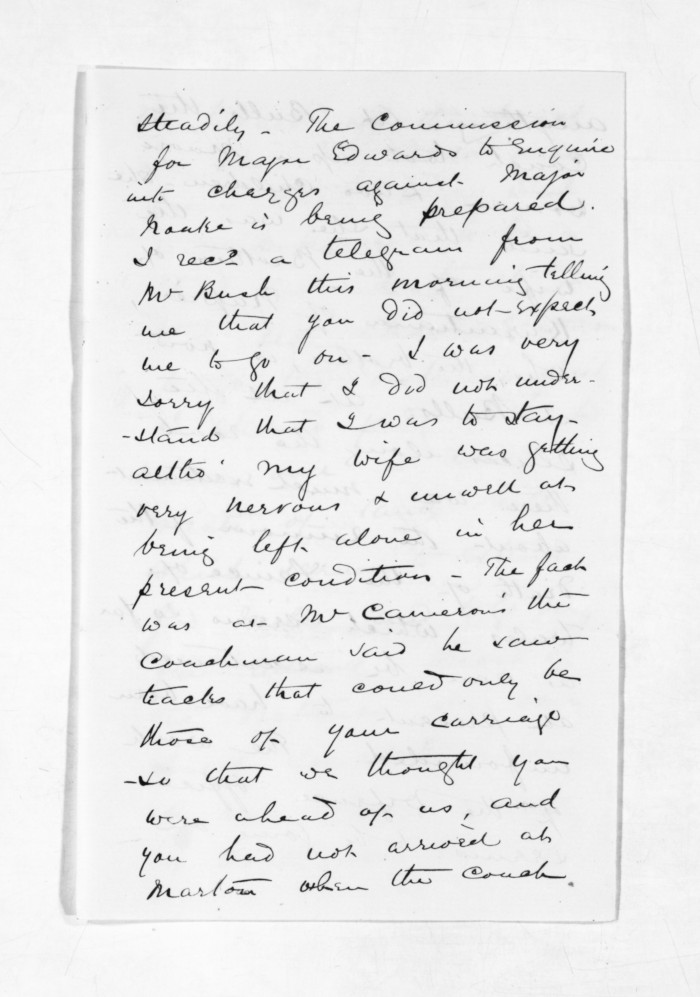 steadily - The Commission
for Major Edwards to Enquire
into charges against Major
Noake is being prepared.
I recd a telegram from
Mr Bush this morning telling
me that you did not expect
me to go on - I was very
sorry that I did not under-
-stand that I was to stay -
altho' my wife was getting
very nervous & unwell at
being left alone in her
present condition - The fact
was at Mr Cameron's the
Coachman said he saw
tracks that could only be
those of your carriage
-so that we thought you
were ahead of us, and
you had not arrived at
Marton when the coach.